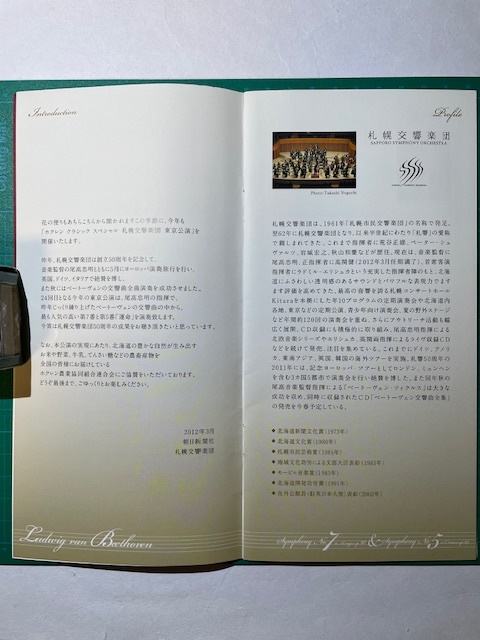 Introduction
花の便りもあちらこちらから聞かれますこの季節に、今年も
「ホクレン クラシック スペシャル 札幌交響楽団 東京公演」を
開催いたします。
昨年、札幌交響楽団は創立50周年を記念して、
音楽監督の尾高忠明とともに5月にヨーロッパ演奏旅行を行い、
英国、ドイツ、イタリアで絶賛を博し、
また秋にはベートーヴェンの交響曲全曲演奏を成功させました。
24回目となる今年の東京公演は、尾高忠明の指揮で、
昨年じっくり練り上げたベートーヴェンの交響曲の中から、
最も人気の高い第7番と第5番「運命」を演奏致します。
今宵は札幌交響楽団50周年の成果をお聴き頂きたいと思っています。
なお、本公演の実現にあたり、北海道の豊かな自然が生み出す
お米や野菜、牛乳、てんさい糖などの農畜産物を
全国の皆様にお届けしている
ホクレン農業協同組合連合会にご協賛をいただいております。
どうぞ最後まで、ごゆっくりとお楽しみください。
2012年3月
朝日新聞社
札幌交響楽団
Ludwig van Beethoven
Profile
札幌交響楽団
SAPPORO SYMPHONY ORCHESTRA
Photo: Takashi Noguchi
札幌交響楽団は、1961年「札幌市民交響楽団」の名称で発足、
翌62年に札幌交響楽団となり、以来半世紀にわたり「札響」の愛称
で親しまれてきた。これまで指揮者に荒谷正雄、ペーター・シュ
ヴァルツ、岩城宏之、秋山和慶などが歴任。現在は、音楽監督に
尾高忠明、正指揮者に高関健(2012年3月任期満了)、首席客演
指揮者にラドミル・エリシュカという充実した指揮者陣のもと、北海
道にふさわしい透明感のあるサウンドとパワフルな表現力でます
ます評価を高めてきた。最高の音響を誇る札幌コンサートホール
Kitaraを本拠にした年10プログラムの定期演奏会や北海道内
各地、東京などの定期公演、青少年向け演奏会、夏の野外ステージ
など年間約120回の演奏会を重ね、さらにアウトリーチ活動も幅
広く展開。CD収録にも積極的に取り組み、尾高忠明指揮による
北欧音楽シリーズやエリシュカ、高関両指揮によるライヴ収録CD
などを続けて発売、注目を集めている。これまでにドイツ、アメリ
カ、東南アジア、英国、韓国の海外ツアーを実施。札響50周年の
2011年には、記念ヨーロッパ・ツアーとしてロンドン、ミュンヘン
を含む3カ国5都市で演奏会を行い絶賛を博した。また同年秋の
尾高音楽監督指揮による「ベートーヴェン・ツィクルス」は大きな
成功を収め、同時に収録されたCD「ベートーヴェン交響曲全集」
の発売を今春予定している。
◆北海道新聞文化賞(1973年)
◆北海道文化賞(1980年)
◆札幌市民芸術賞(1981年)
◆地域文化功労による文部大臣表彰(1983年)
◆モービル音楽賞(1985年)
◆北海道開発功労賞(1991年)
◆在外公館長(駐英日本大使)表彰(2002年)
Symphony No.7 & Symphony No.5